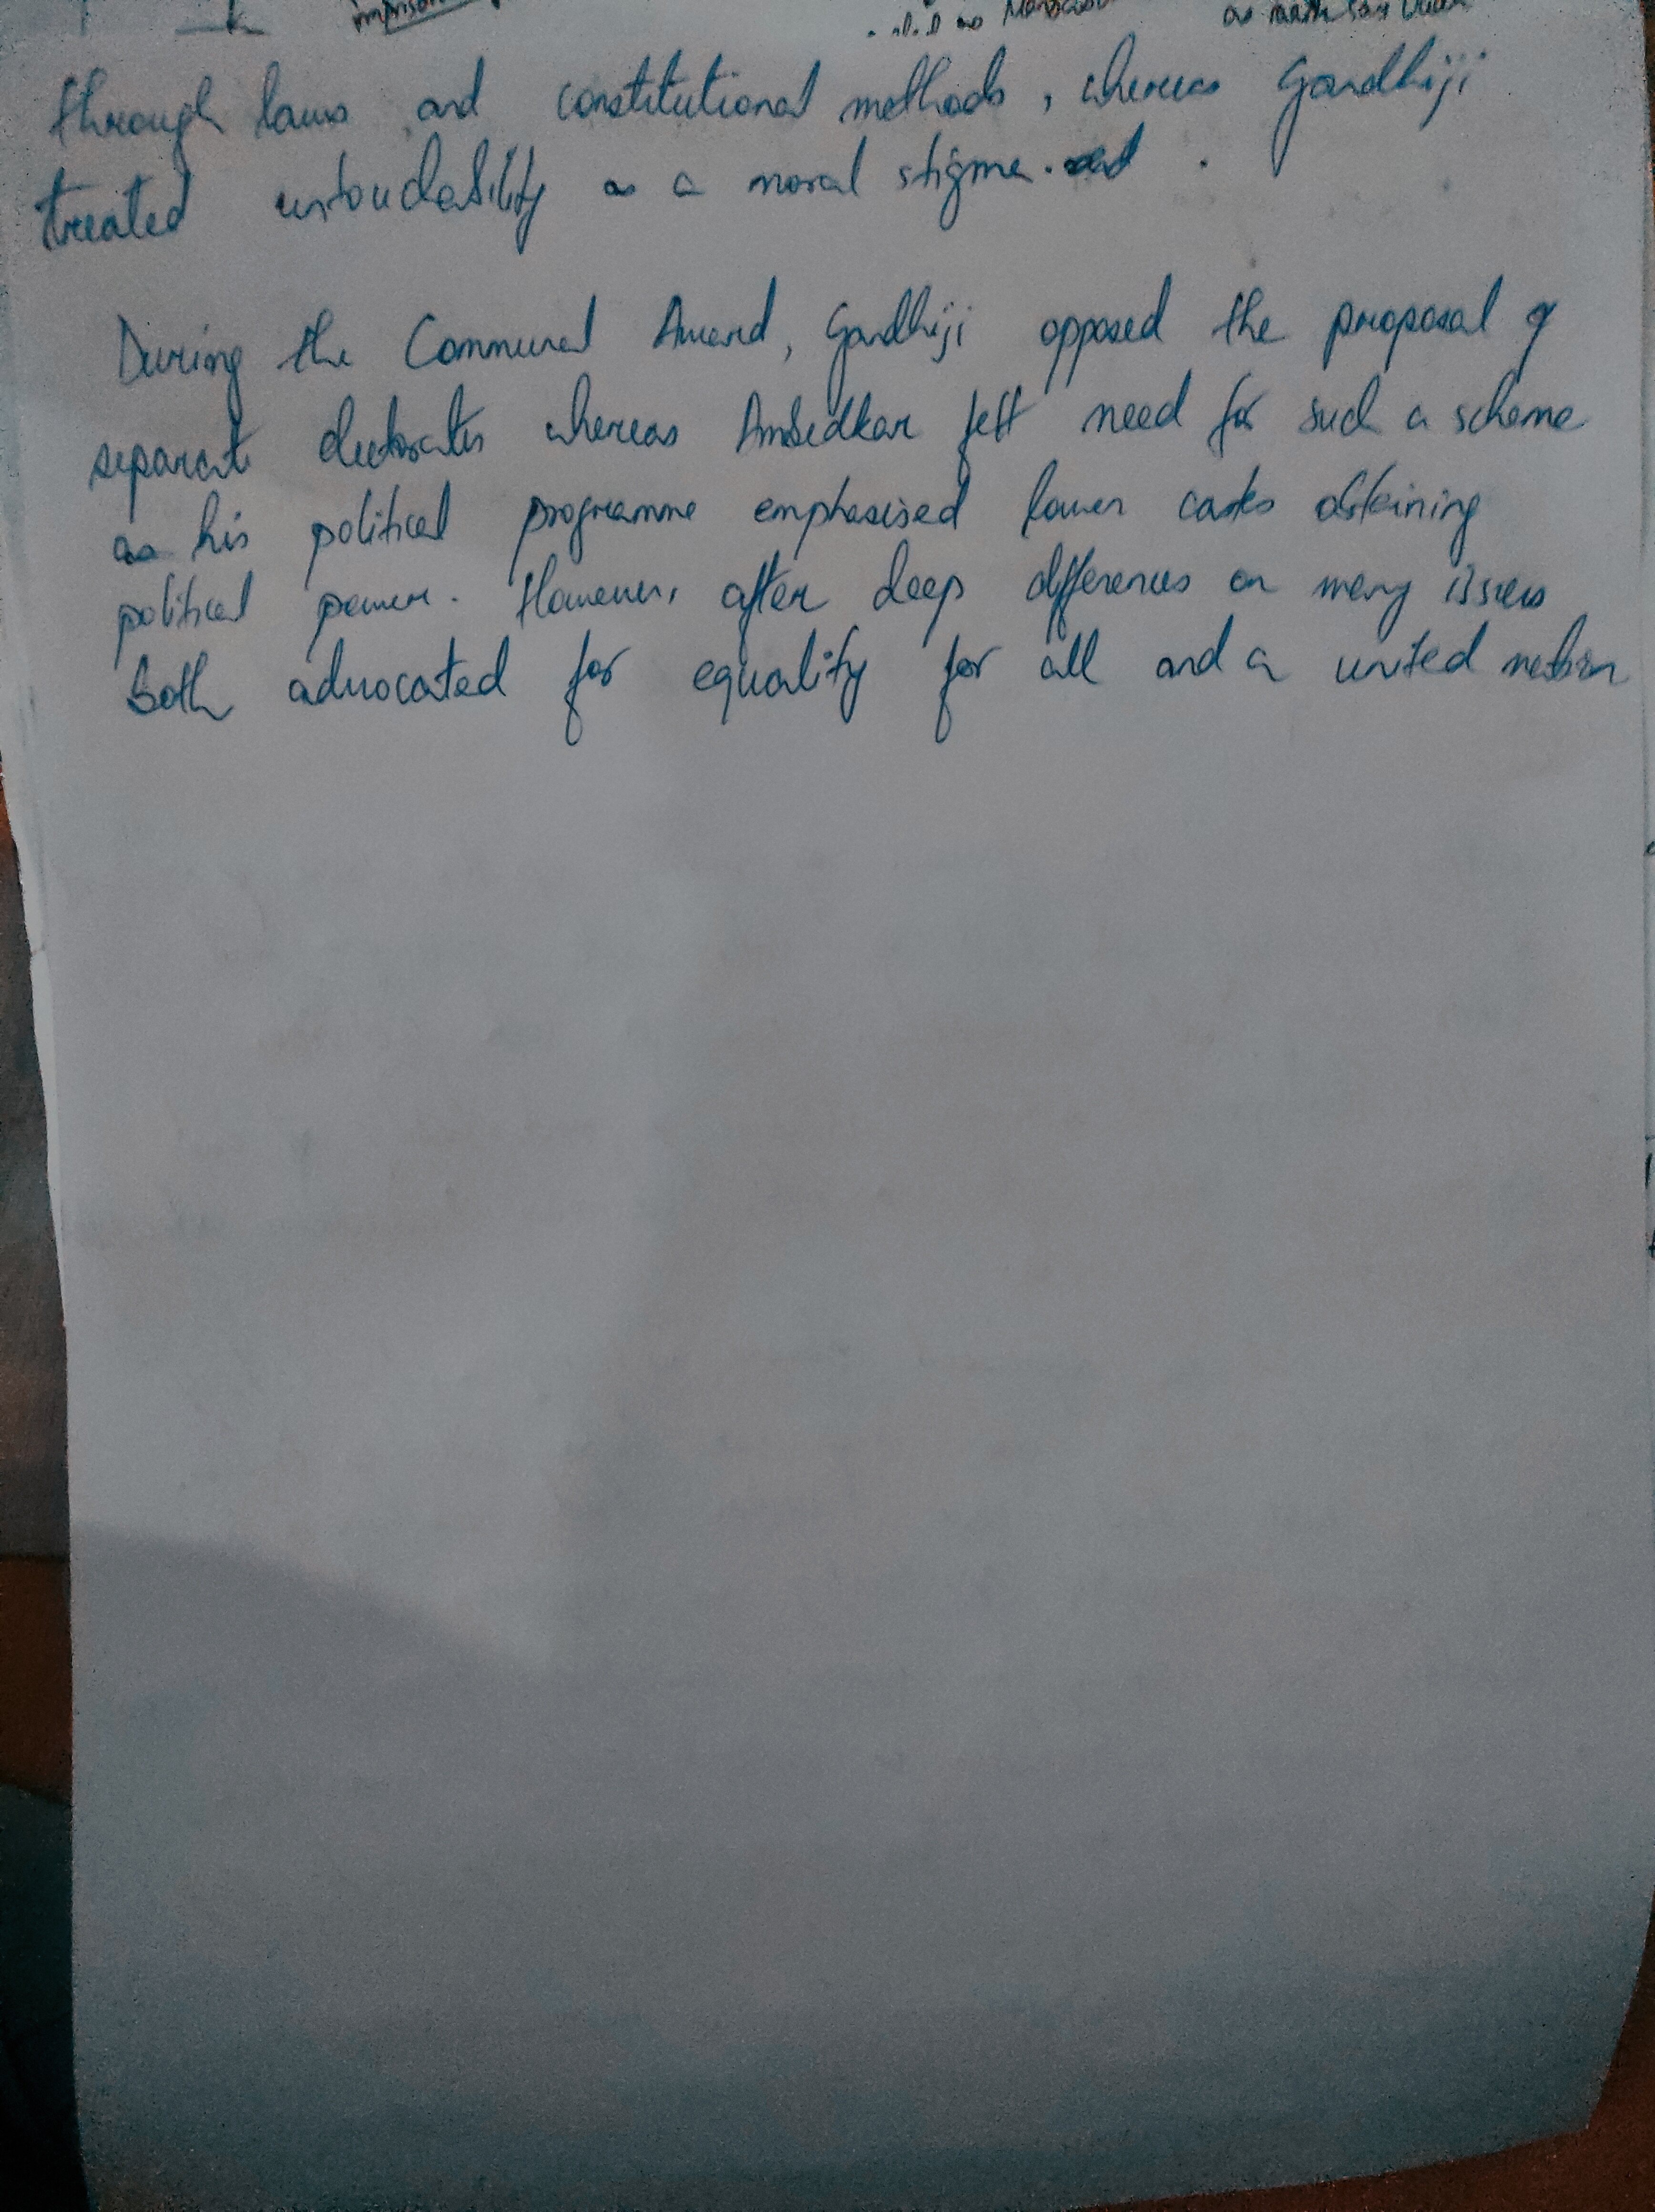 through laws and constitutional methods, whereas Gandhiji
treated untouchability as a moral stigma.
During the Communal Award, Gandhiji opposed the proposal of
separate electorates whereas Ambedkar felt need for such a scheme
as his political programme emphasised lower castes obtaining
political power. However, after deep differences on many issues
both advocated for equality for all and a united nation